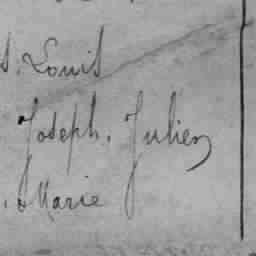 s. Louis
Joseph. Julien
. Marie